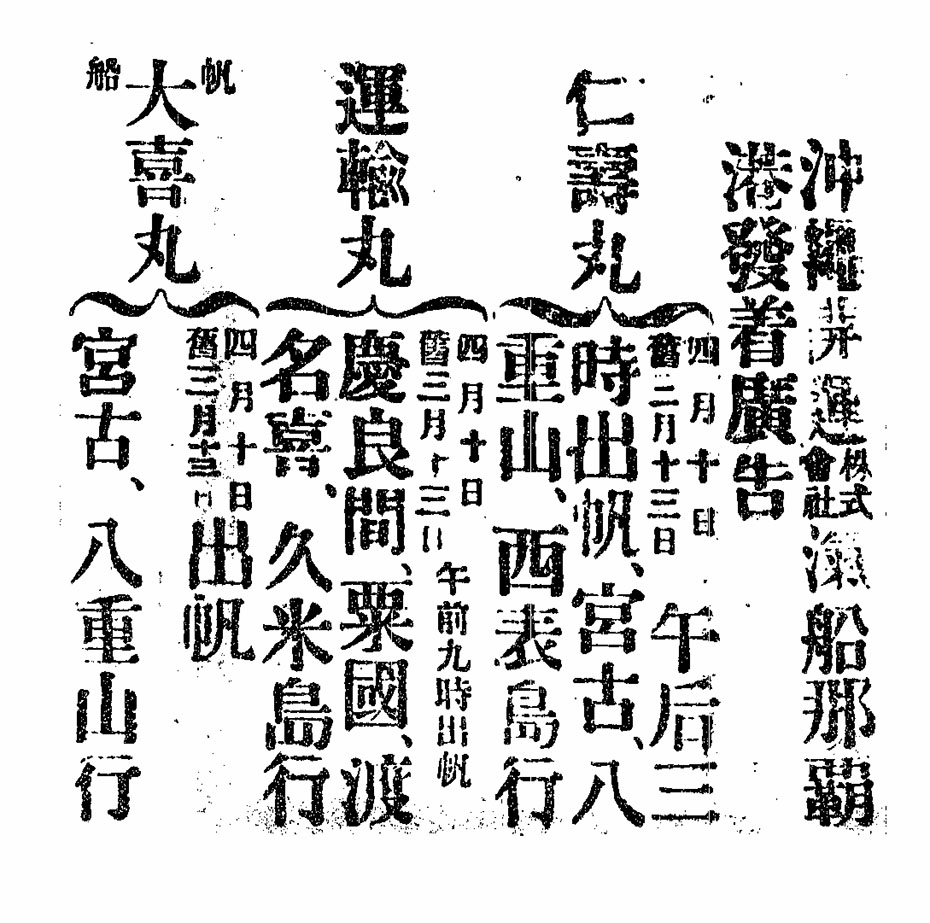 沖繩開運株式會社滊船那覇
港發着廣告
仁壽丸
四月十日
舊二月十三日
午后三
時出帆、宮古、八
重山、西表島行
運輸丸
四月十日
舊三月十三日
午前九時出帆
慶良間、粟國、渡
名喜、久米島行
帆船
大喜丸
四月十日
舊三月十三日
出帆
宮古、八重山行